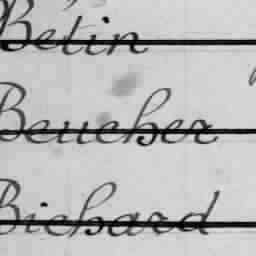 Betin
Beucher
Bichard